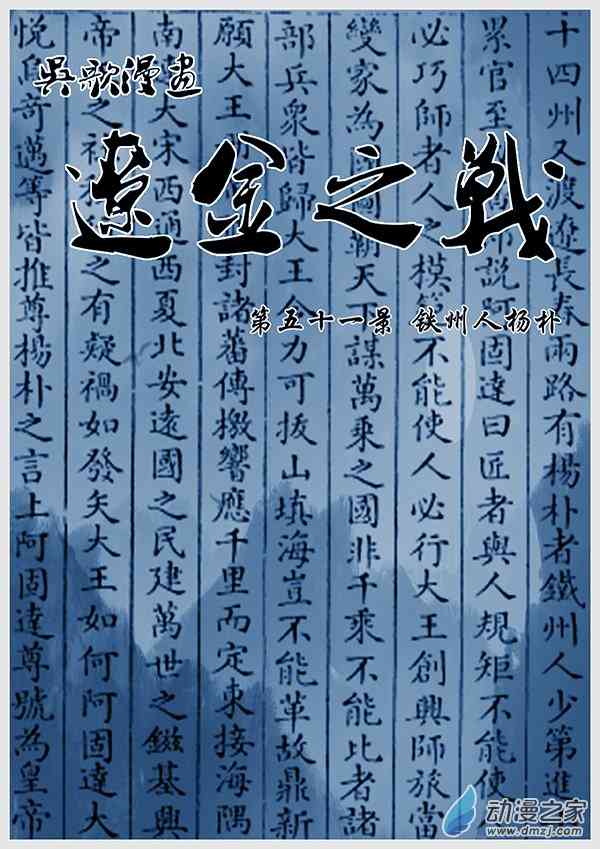 吳歌漫畫
遼金之戰
第五十一景 铁州人杨朴
十四州又渡遼長春兩路有楊朴者鐵州人少第進
累官至郎說阿固達曰匠者與人規矩不能使人
必巧師者人之模不能使人必行大王創興師旅當
變家為國圖天下謀萬乘之國非千乘不能比者諸
部兵眾皆歸大王今力可拔山填海豈不能革故鼎新
願大王封諸蕃傳檄響應千里而定東接海隅
南大宋西通西夏北安遠國之民建萬世之鎡基興
帝之之有疑禍如發矢大王如何阿固達大
悅烏奇邁等皆推尊楊朴之言上阿固達尊號為皇帝
动漫之家
www.dmzj.com